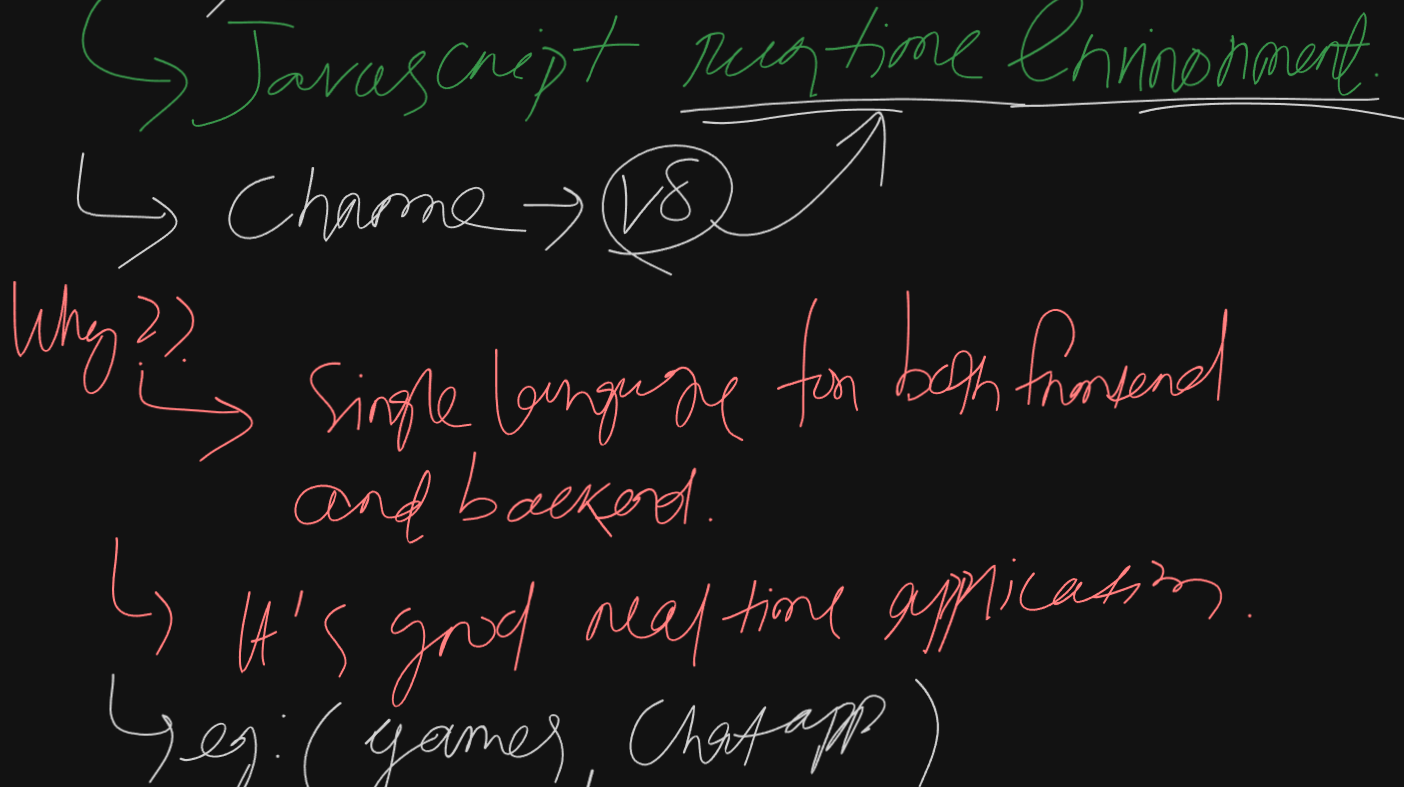 Javascript runtime Environment.
Chrome → V8
Why??
Single language for both frontend
and backend.
It's good real time application.
eg: (games, Chat app)